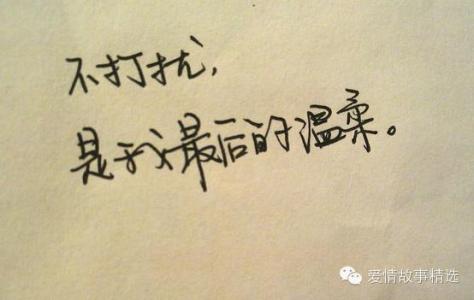 不打扰,
是我最后的温柔。
爱情故事精选